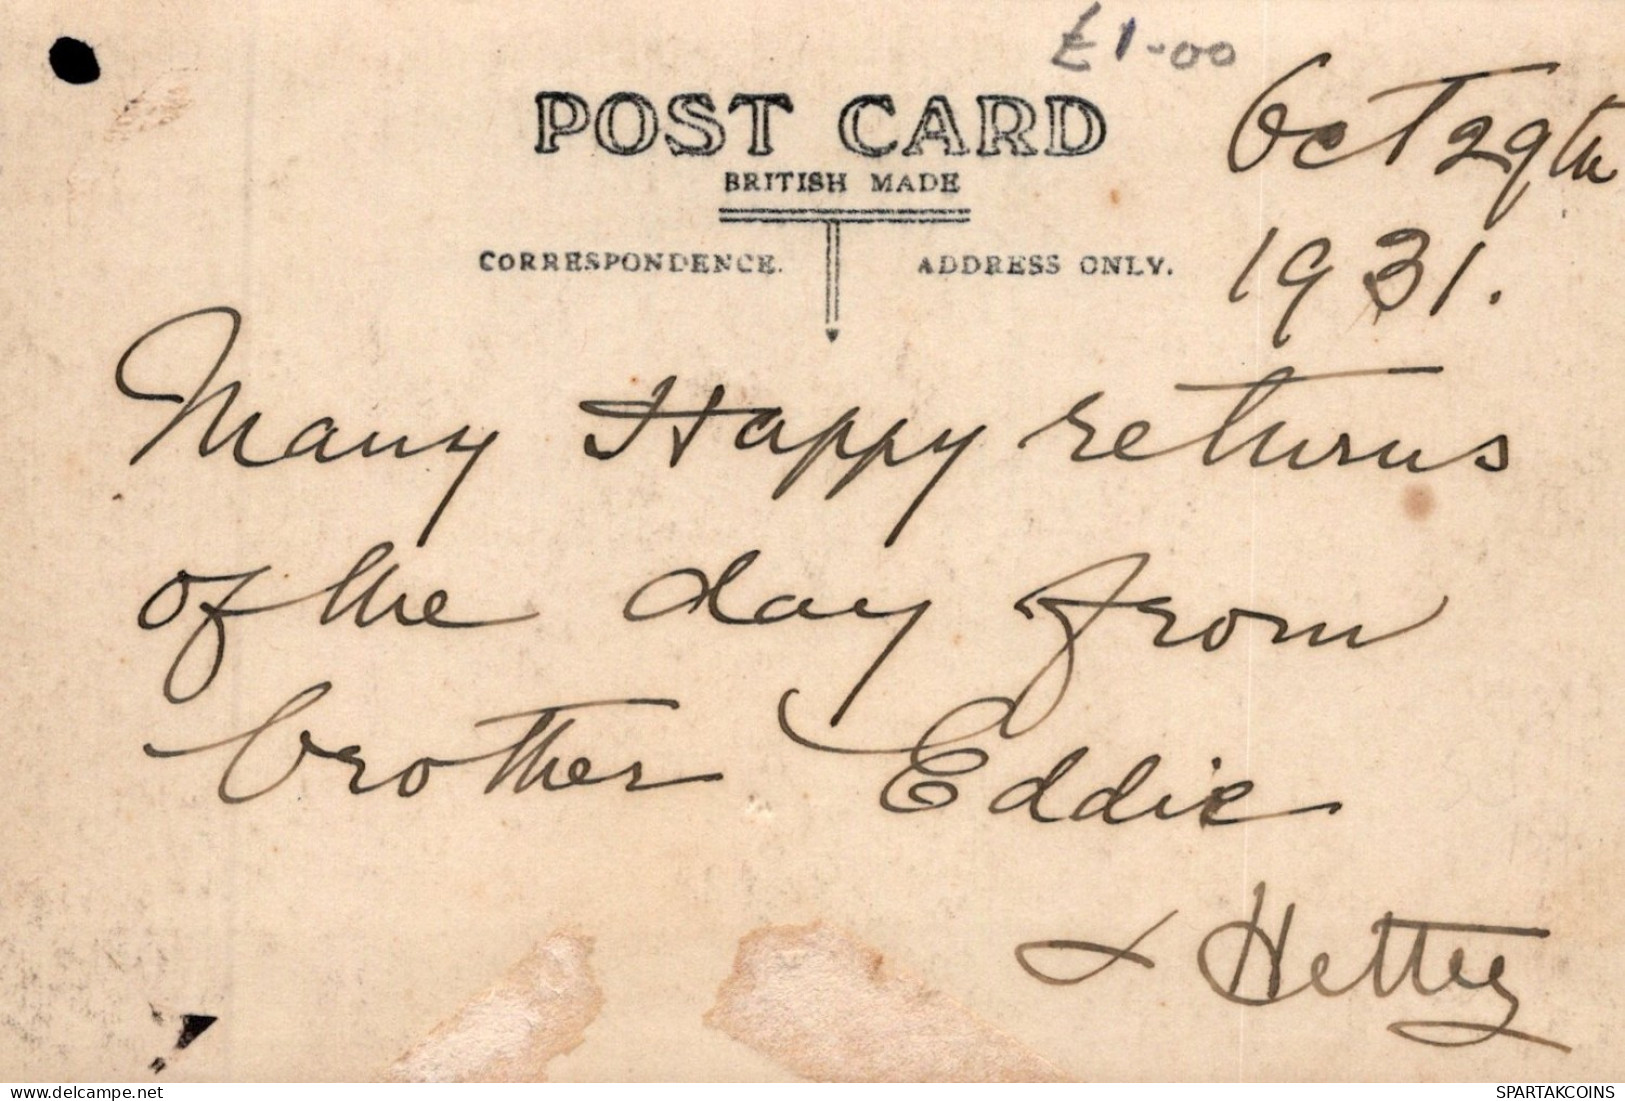 £1-00
POST CARD
BRITISH MADE
Oct 29th
1931.
CORRESPONDENCE. ADDRESS ONLY.
Many Happy returns
of the day from
brother Eddie
& Hetty
delcampe.net SPARTAKCOINS